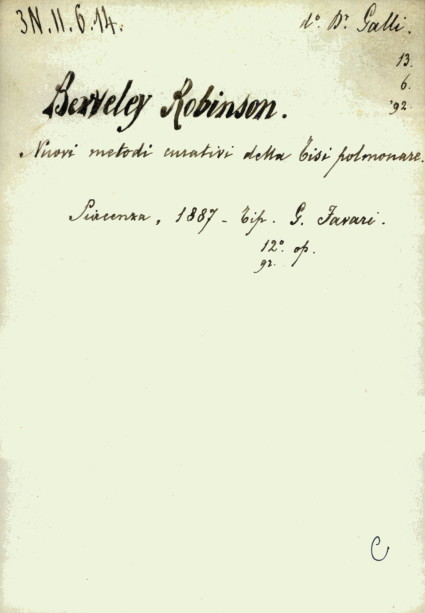 3N.11.6.14.
d.º Dr Galli.
13.
6.
'92
Berveley Robinson.
Nuovi metodi curativi della Tisi polmonare.
Piacenza, 1887 - Tip. G. Favari.
12º op.
92.
C